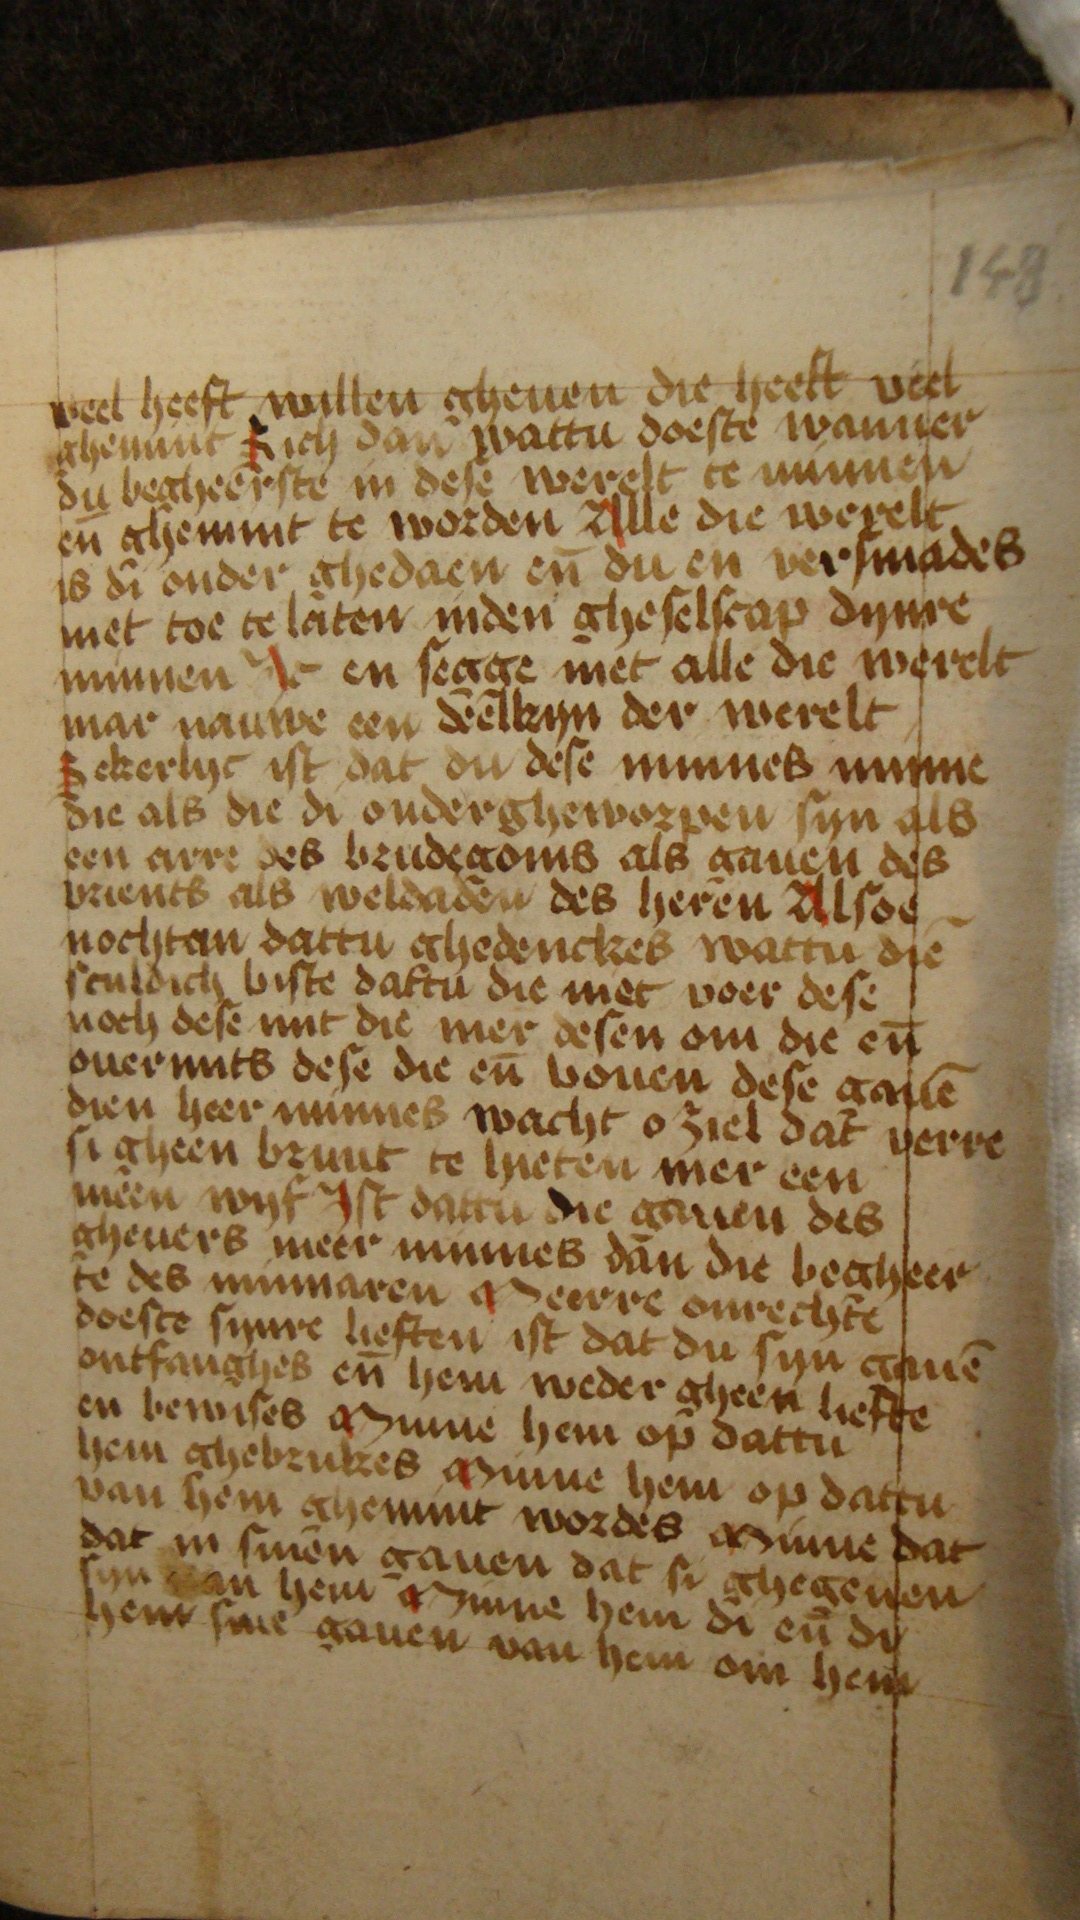 148
veel heeft willen gheuen die heeft veel
ghemint Sich dan wattu doeste wanner
du begheerste in dese werelt te minnen
en̄ ghemint te worden Alle die werelt
is di onder ghedaen en̄ du en versmades
niet toe te laten inden gheselscap dynre
minnen Ic en segge niet alle die werelt
mar nauwe een deelkyn der werelt
Sekerlyc ist dat du dese minnes minne
die als die di ondergheworpen syn als
een arre des brudegoms als gauen des
vrients als weldaden des heren Alsoe
nochtan dattu ghedenckes wattu die
sculdich biste dattu die niet voer dese
noch dese mit die mer desen om die en̄
ouermits dese die en̄ bouen dese gauē
dien heer minnes wacht o ziel dat verre
si gheen bruut te hieten mer een
meen wyf Ist dattu die gauen des
gheuers meer minnes dan die begheer
te des minnaren Meerre onrechte
doeste synre lieften ist dat du syn gauē
ontfanghes en̄ hem weder gheen liefte
en bewises Minne hem op dattu
hem ghebrukes Minne hem op dattu
van hem ghemint wordes Minne dat
dat in sinen gauen dat si ghegeuen
syn van hem Minne hem di en̄ di
hem sine gauen van hem om hem